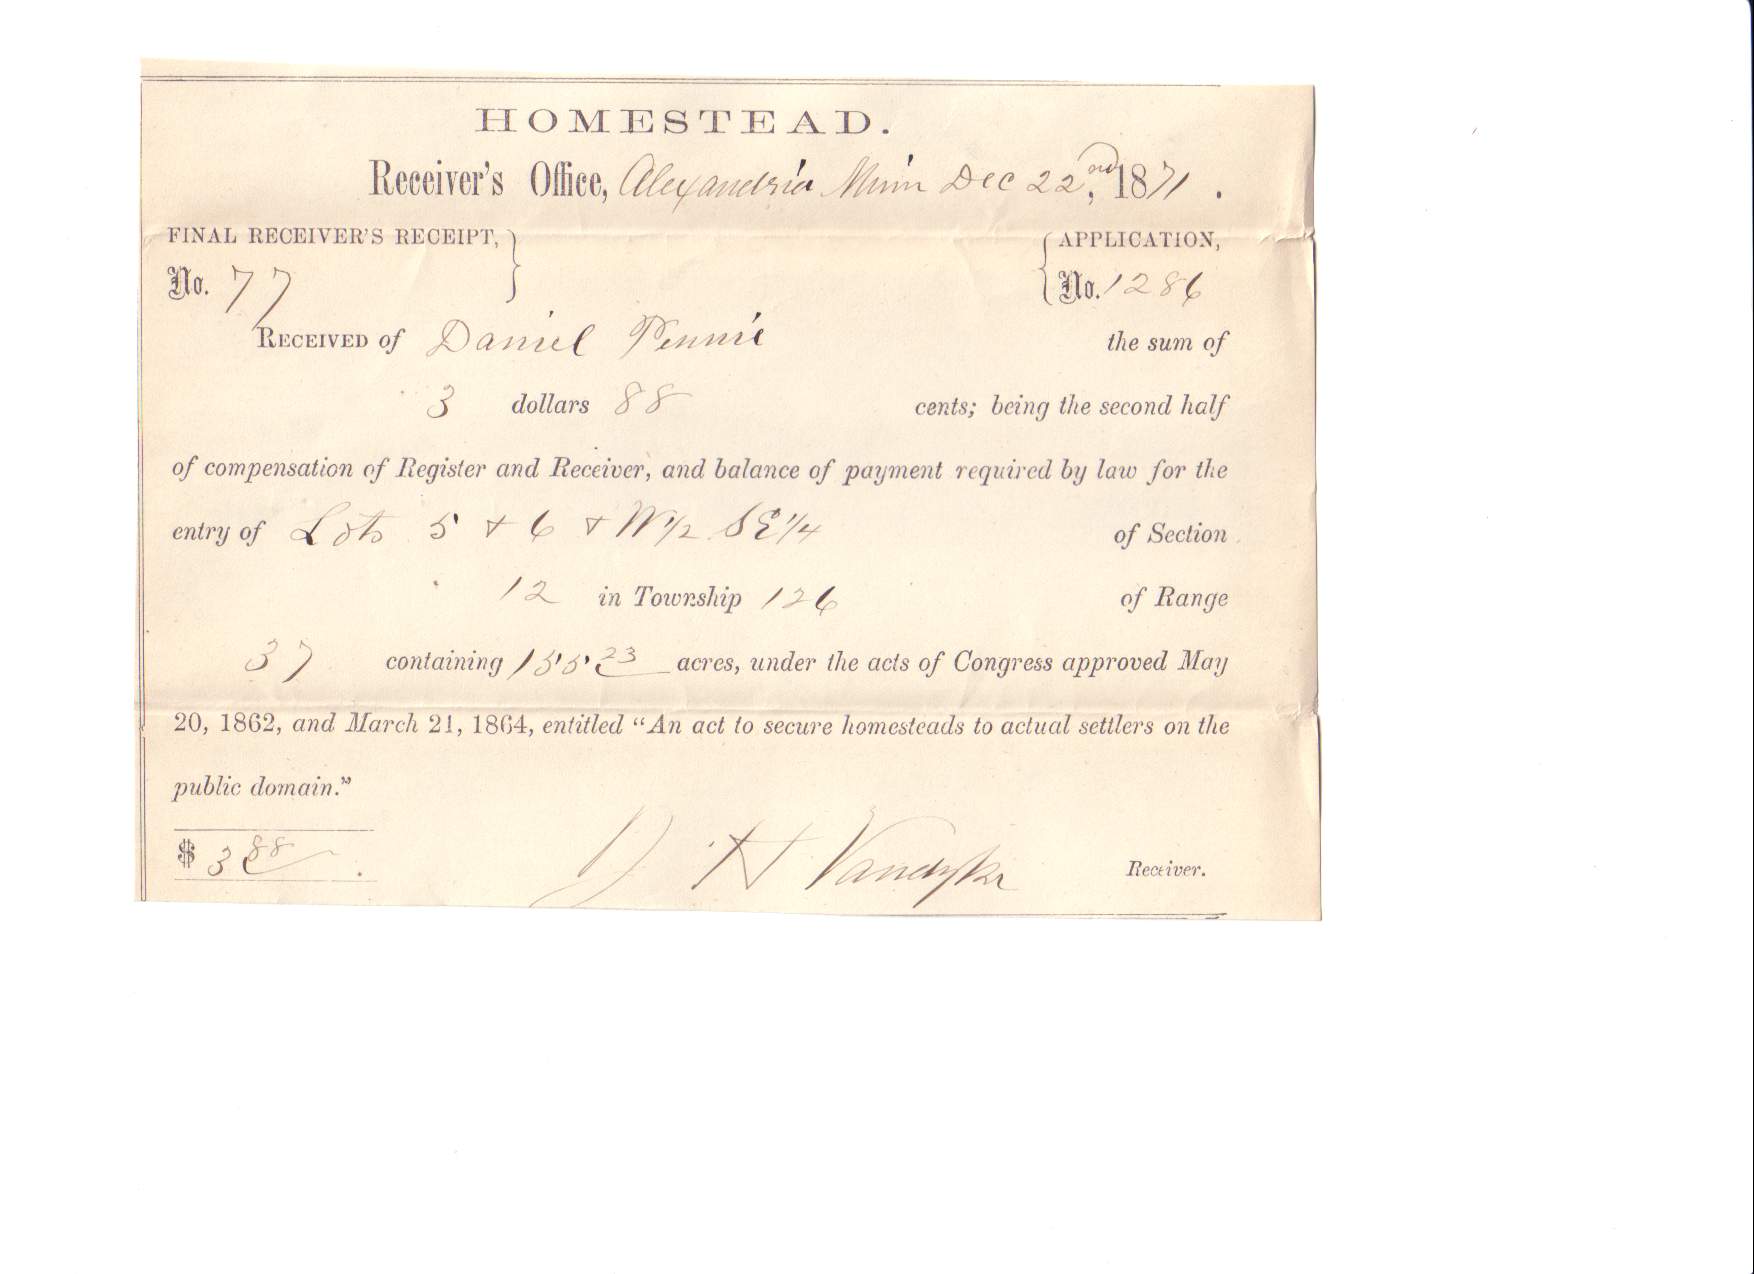 HOMESTEAD.
Receiver's Office, Alexandria Minn Dec 22nd, 1871.
FINAL RECEIVER'S RECEIPT, APPLICATION,
No. 77 No. 1286
RECEIVED of Daniel Pennie the sum of
3 dollars 88 cents; being the second half
of compensation of Register and Receiver, and balance of payment required by law for the
entry of Lots 5 & 6 & W 1/2 SE 1/4 of Section
12 in Township 126 of Range
37 containing 155 23 acres, under the acts of Congress approved May
20, 1862, and March 21, 1864, entitled "An act to secure homesteads to actual settlers on the
public domain."
$ 3 88. H Vandyke Receiver.